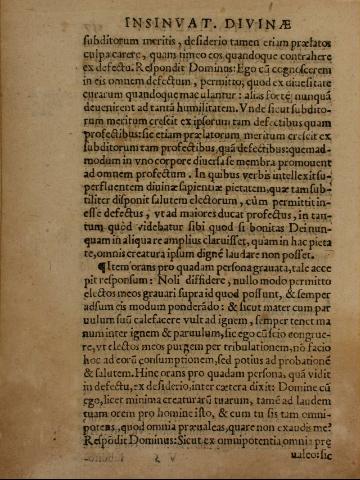 INSINVAT. DIVINÆ
subditorum meritis, desiderio tamen etiam prælatos
culpa carere, quam timeo eos quandoque contrahere
ex defectu. Respondit Dominus: Ego cũ cognoscerem
in eis omnem defectum, permitto, quod ex diuersitate
curarum quandoque maculantur: alias forte nunquã
deuenirent ad tantã humilitatem. Vnde sicut subdito-
rum meritum crescit ex ipsorum tam defectibus quam
profectibus: sic etiam prælatorum meritum crescit ex
subditorum tam profectibus, quã defectibus: quemad-
modum in vno corpore diuersa se membra promouent
ad omnem profectum. In quibus verbis intellexit su-
perfluentem diuinæ sapientiæ pietatem, quæ tam sub-
tiliter disponit salutem electorum, cùm permittit in-
esse defectus, vt ad maiores ducat profectus, in tan-
tum quòd videbatur sibi quod si bonitas Dei nun-
quam in aliqua re amplius claruisset, quam in hac pieta
te, omnis creatura ipsum dignè laudare non posset.
¶ Item orans pro quadam persona grauata, tale acce
pit responsum: Noli diffidere, nullo modo permitto
electos meos grauari supra id quod possunt, & semper
adsum eis modum ponderãdo: & sicut mater cum par
uulum suũ calefacere vult ad ignem, semper tenet ma
num inter ignem & paruulum, sic ego cũ scio congrue-
re, vt electos meos purgem per tribulationem, nõ facio
hoc ad eorũ consumptionem, sed potius ad probationẽ
& salutem. Hinc orans pro quadam persona, quã vidit
in defectu, ex desiderio, inter cætera dixit: Domine cũ
ego, licet minima creaturarũ tuarum, tamẽ ad laudem
tuam orem pro homine isto, & cum tu sis tam omni-
potens, quod omnia præualeas, quare non exaudis me?
Respõdit Dominus: Sicut ex omnipotentia omnia prę
ualeo: sic